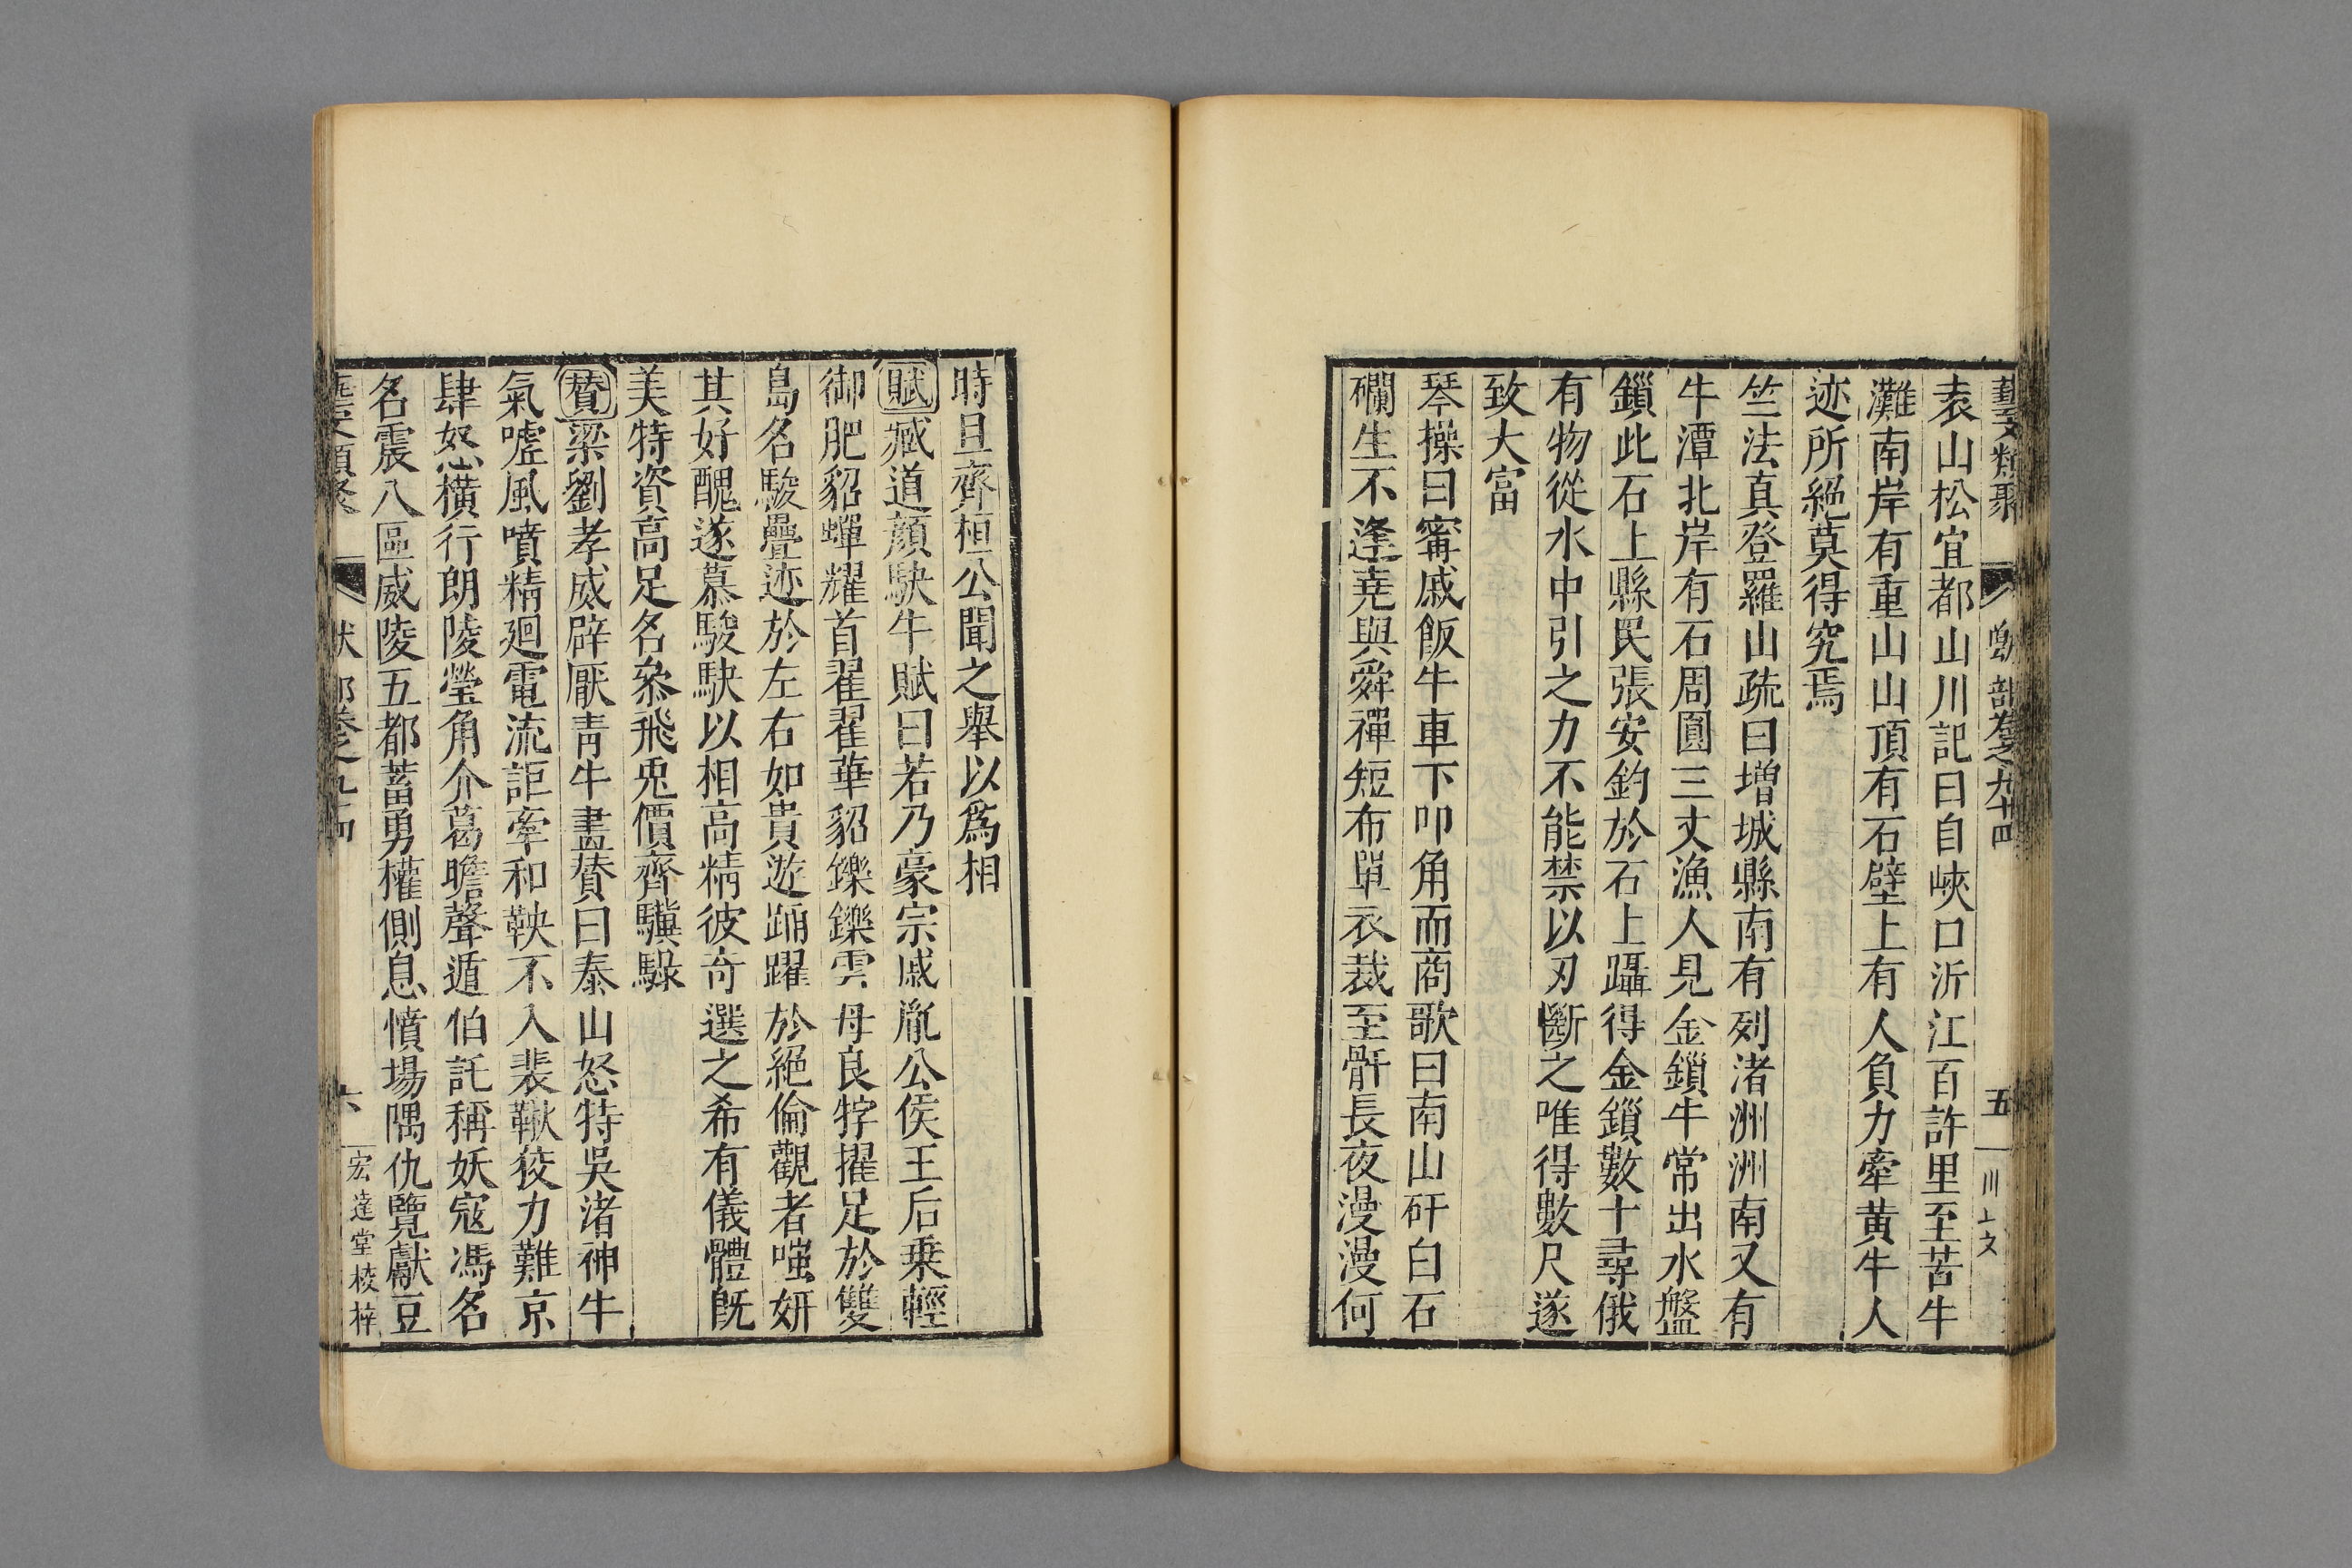 藝文類聚 獸部卷之九十四 五 川上文
袁山松宜都山川記曰自峽口沂江百許里至苦牛
灘南岸有重山山頂有石壁上有人負力牽黄牛人
迹所絕莫得究焉
竺法真登羅山疏曰增城縣南有列渚洲洲南又有
牛潭北岸有石周圓三丈漁人見金鎖牛常出水盤
鎖此石上縣民張安釣於石上躡得金鎖數十尋俄
有物從水中引之力不能禁以刃斷之唯得數尺遂
致大富
琴操曰甯戚飯牛車下叩角而商歌曰南山矸白石
礀生不逢堯與舜禪短布單衣裁至骭長夜漫漫何
時旦齊桓公聞之舉以爲相
賦臧道顏駃牛賦曰若乃豪宗戚胤公侯王后乗輕
御肥貂蟬耀首翟翟華貂鑠鑠雲母良牸擢足於雙
島名駿疊迹於左右如貴遊踊躍於絕倫觀者嗤妍
其好醜遂慕駿駃以相高精彼奇選之希有儀體旣
美特資高足名叅飛兎價齊驥騄
贊梁劉孝威辟厭靑牛畫贊曰泰山怒特吳渚神牛
氣嘘風噴精廻電流詎牽和鞅不入裴鞦狡力難京
肆怒横行朗陵瑩角介葛瞻聲遁伯託稱妖寇馮名
名震八區威陵五都蓄勇權側息憤場隅仇覽獻豆
藝文類聚 獸部卷之九十四 六 宏達堂校梓